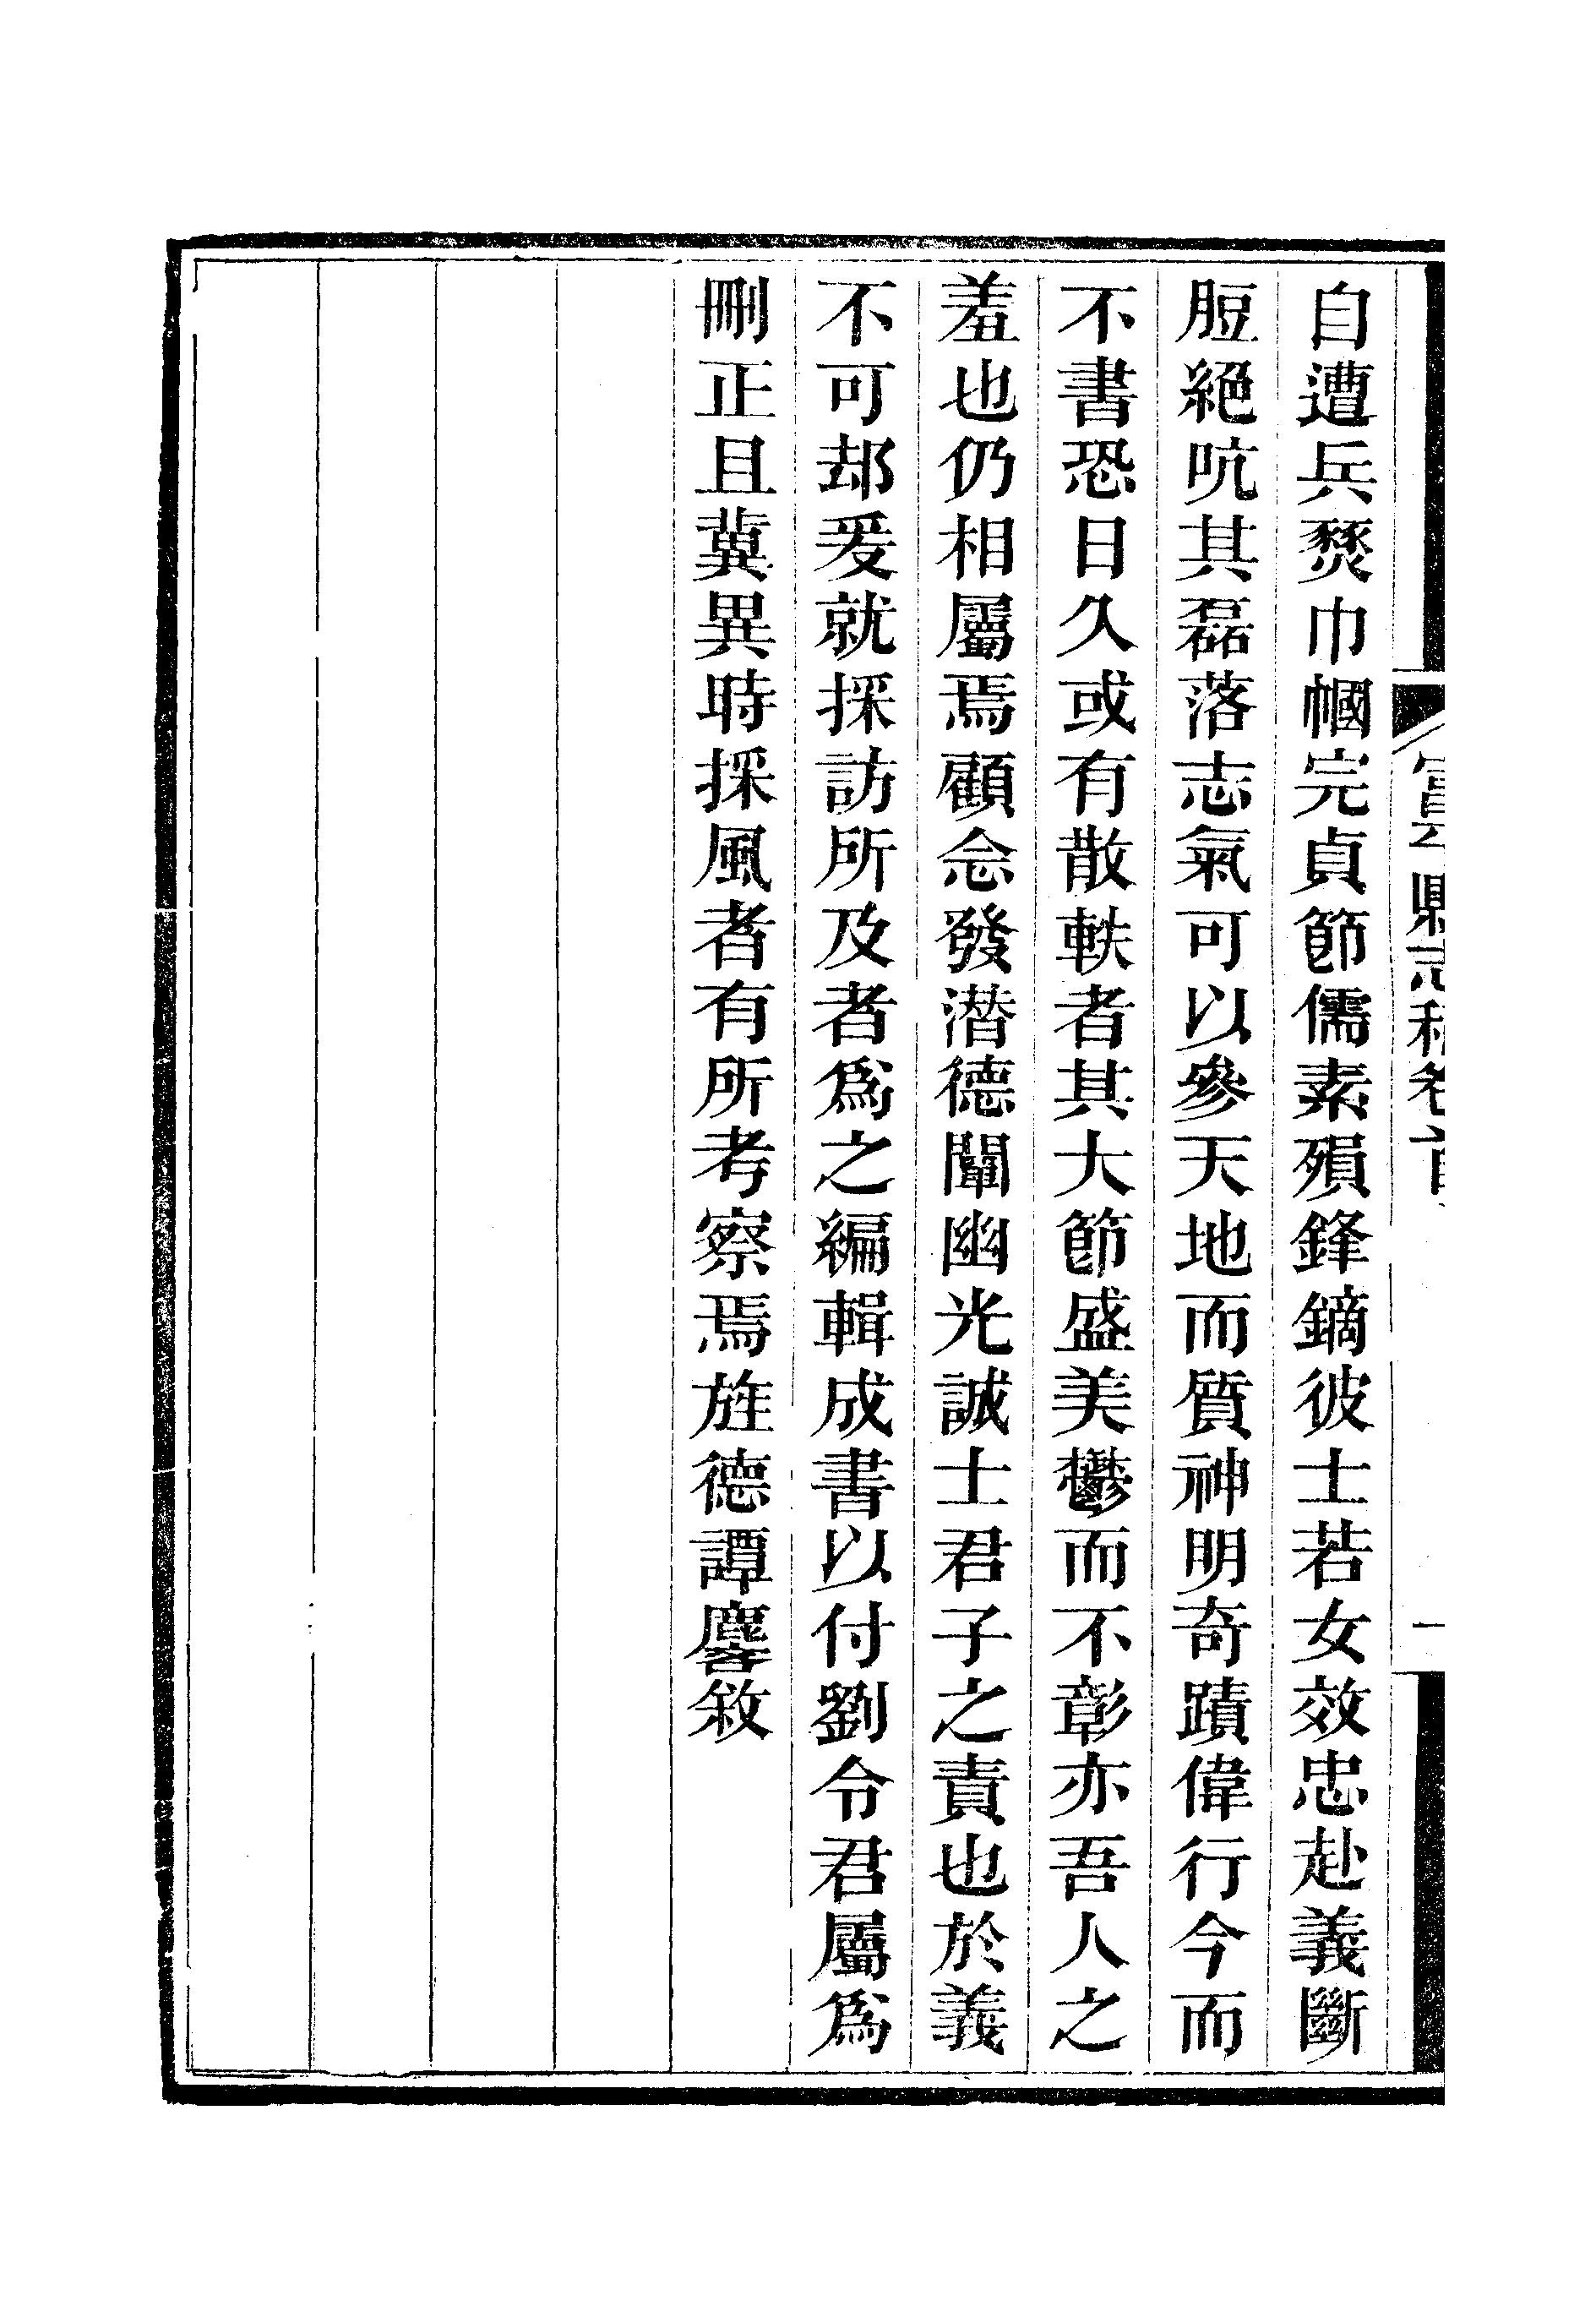 自遭兵燹巾幗完貞節儒素殞鋒鏑彼士若女效忠赴義斷
脰絕吭其磊落志氣可以參天地而質神明奇蹟偉行今而
不書恐日久或有散軼者其大節盛美鬱而不彰亦吾人之
羞也仍相屬焉顧念發潛德闡幽光誠士君子之責也於義
不可却爰就採訪所及者為之編輯成書以付劉令君屬為
刪正且冀異時採風者有所考察焉旌德譚麐敘